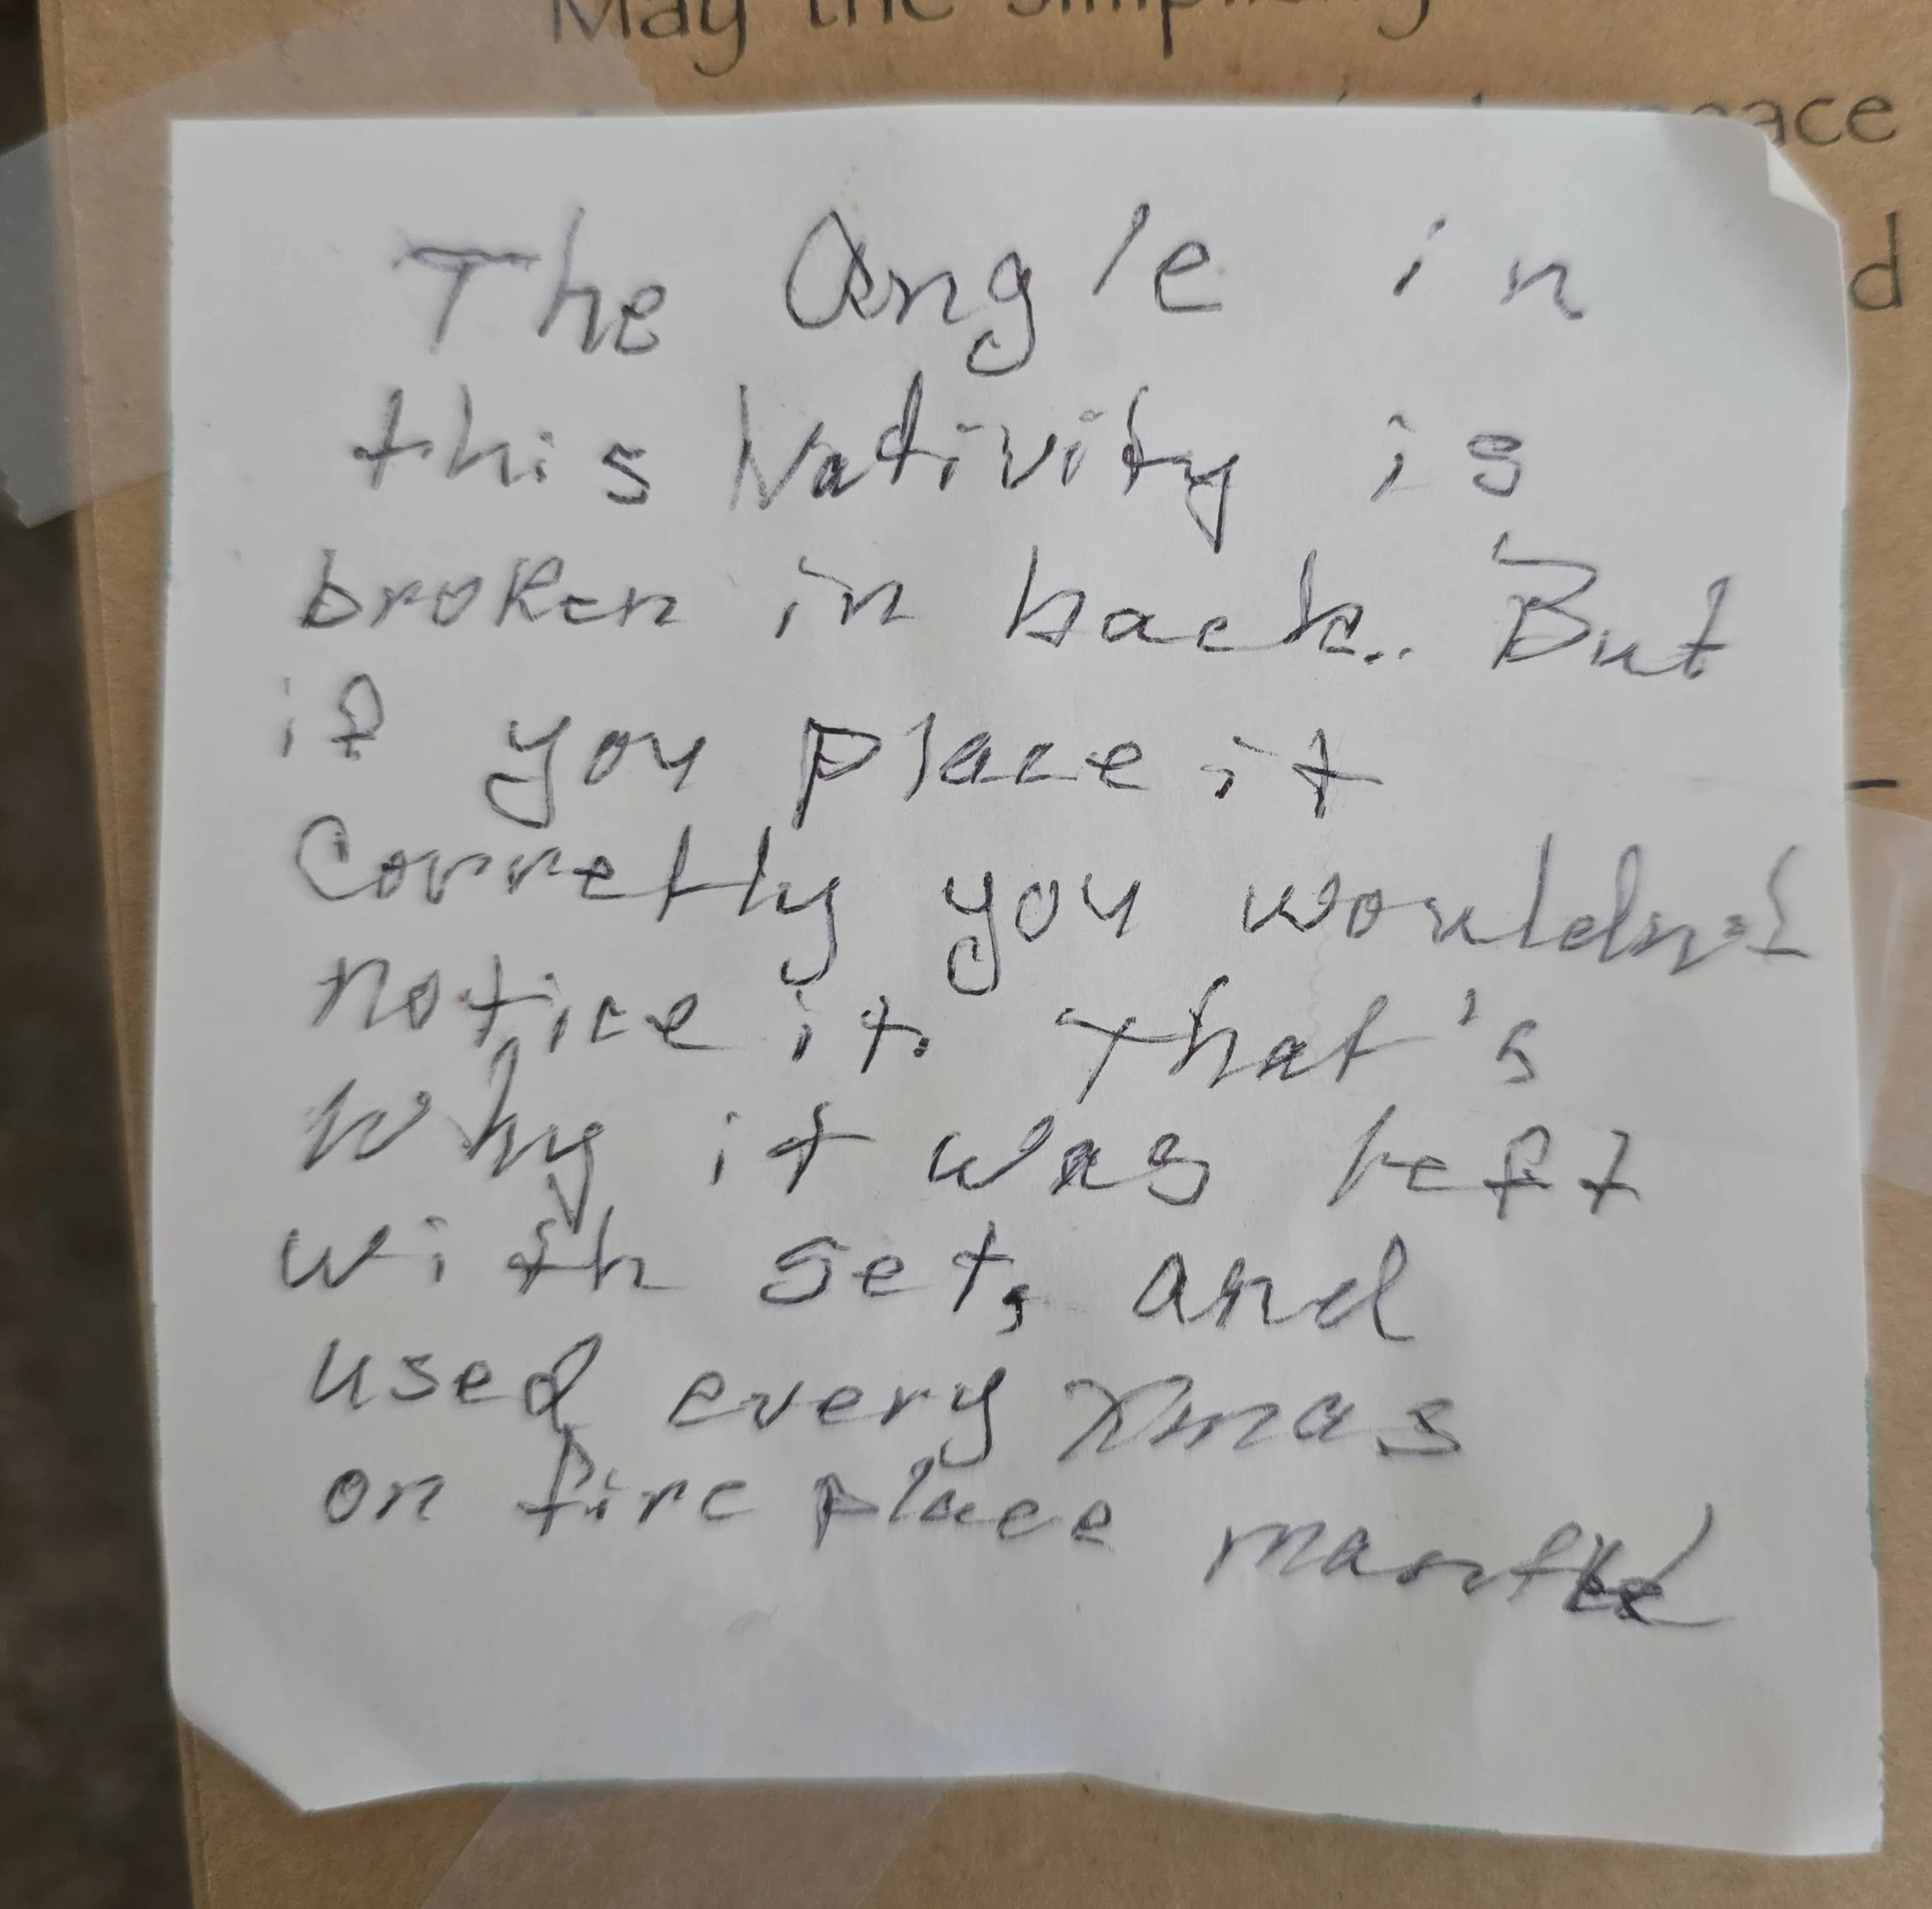 May the simplicity
peace
d
The Angle in
this Nativity is
broken in back.. But
if you place it
Corretly you wouldn't
notice it. That's
Why it was left
with set, and
used every Xmas
on fire place mantle